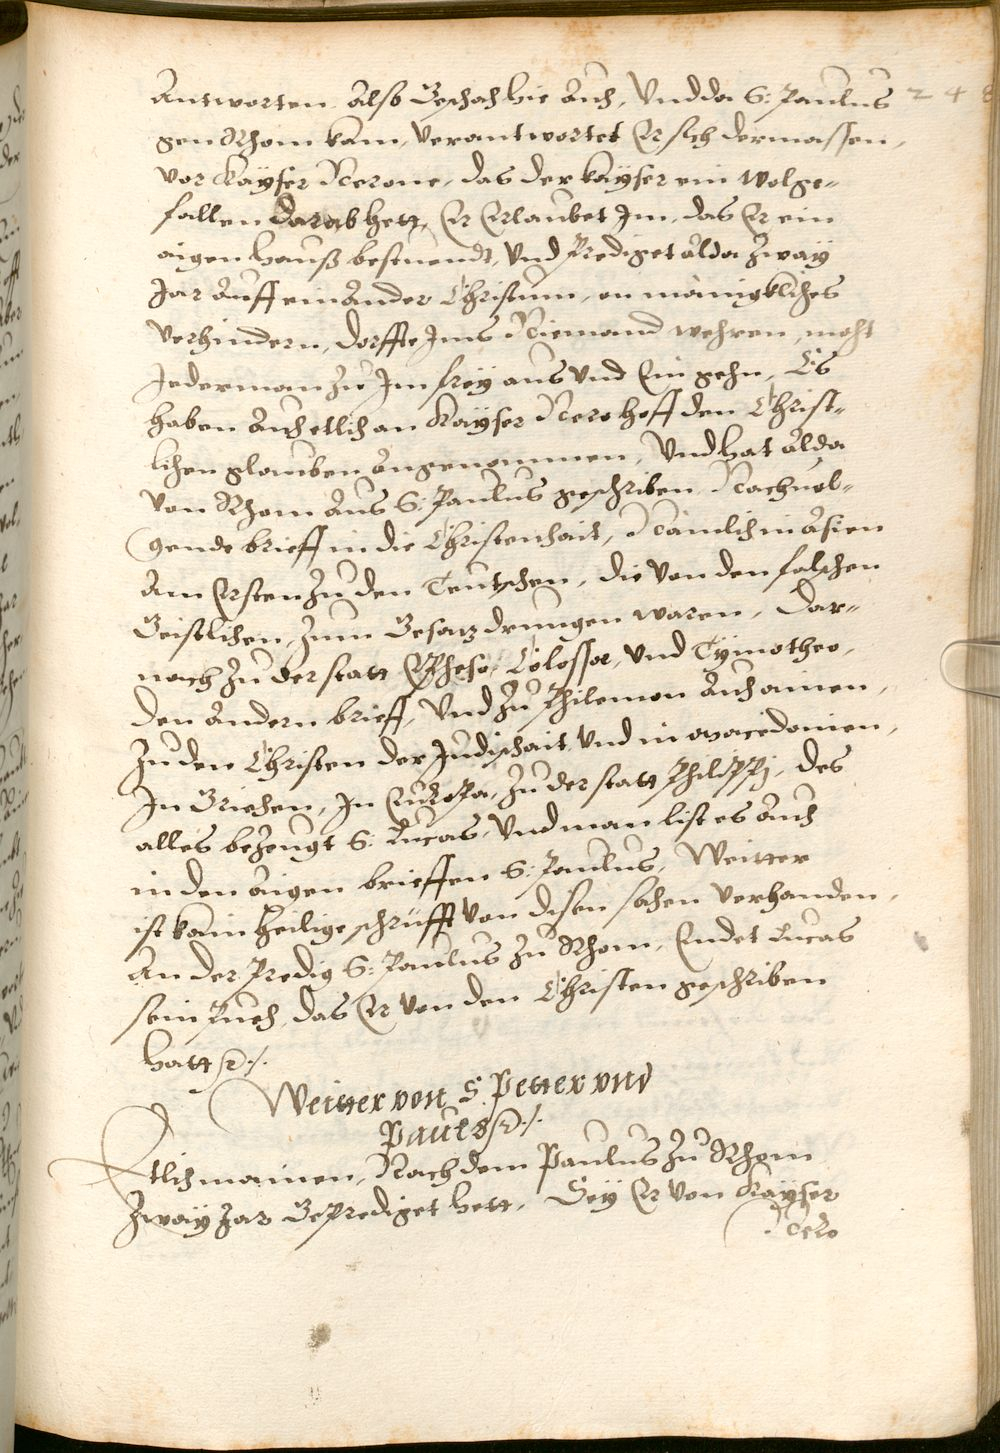 Antworten. Also Geschach hie Auch, Und da S: Paulus 248
gen Rhom kam, verantwortet Er sich dermassen,
vor Kayser Nerone, das der kayser ein wolge-
fallen darab hett, Er Erlaubet Im, das Er ein
aigen hauß bestuendt, Und Prediget alda Zway
Jar auff einander Christum, on mänigkliches
verhindern, dorffte Ims Niemand wehren, mocht
Jederman zu Im frey aus Und Ein gehn, Es
haben Auch etlich an Kayser Nero hoff den Christ-
lichen glauben angenommen, Und hat alda
von Rhom aus S: Paulus geschriben Nachuol-
gende brieff in die Christenhait, Nämlich in Asien
Am Ersten zu den Teutschen, die von den falschen
Geistlichen, zum Gesaz drungen waren, Dar-
nach zu der statt Epheso, Colossae, Und Tymotheo,
den Andern brieff, Und zu Philemon Auch ainen,
Zu den Christen der Judischait, Und in Macedonien,
In Griechen, In Europa, zu der statt Philippj, des
alles bezeugt S: Lucas, Und man list es Auch
in den aigen brieffen S: Paulus, Weitter
ist kain heilige schrüfft von disen sachen verhanden,
An der Predig S: Paulus zu Rhom, Endet Lucas
sein Puech, das Er von den Christen geschriben
hatt
Weitter von S. Petter vnd
Pauls
Etlich mainen, Nach dem Paulus zu Rhom
Zway Jar Geprediget hett, Sey Er von Kayser
Nero